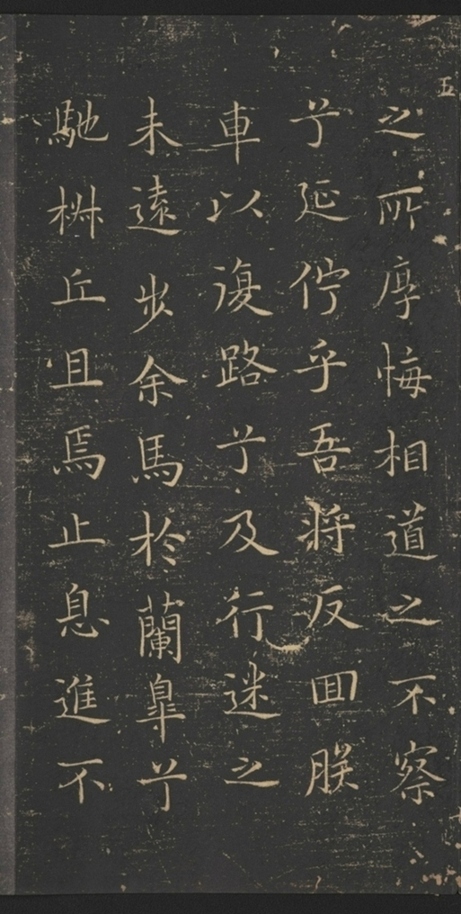 五
之所厚悔相道之不察
兮延佇乎吾將反回朕
車以復路兮及行迷之
未遠步余馬於蘭皐兮
馳椒丘且焉止息進不